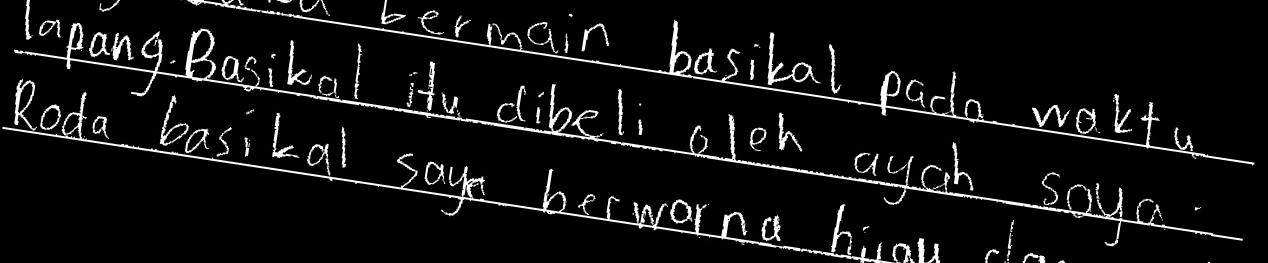 bermain basikal pada waktu
lapang. Basikal itu dibeli oleh ayah saya.
Roda basikal saya berwarna hijau